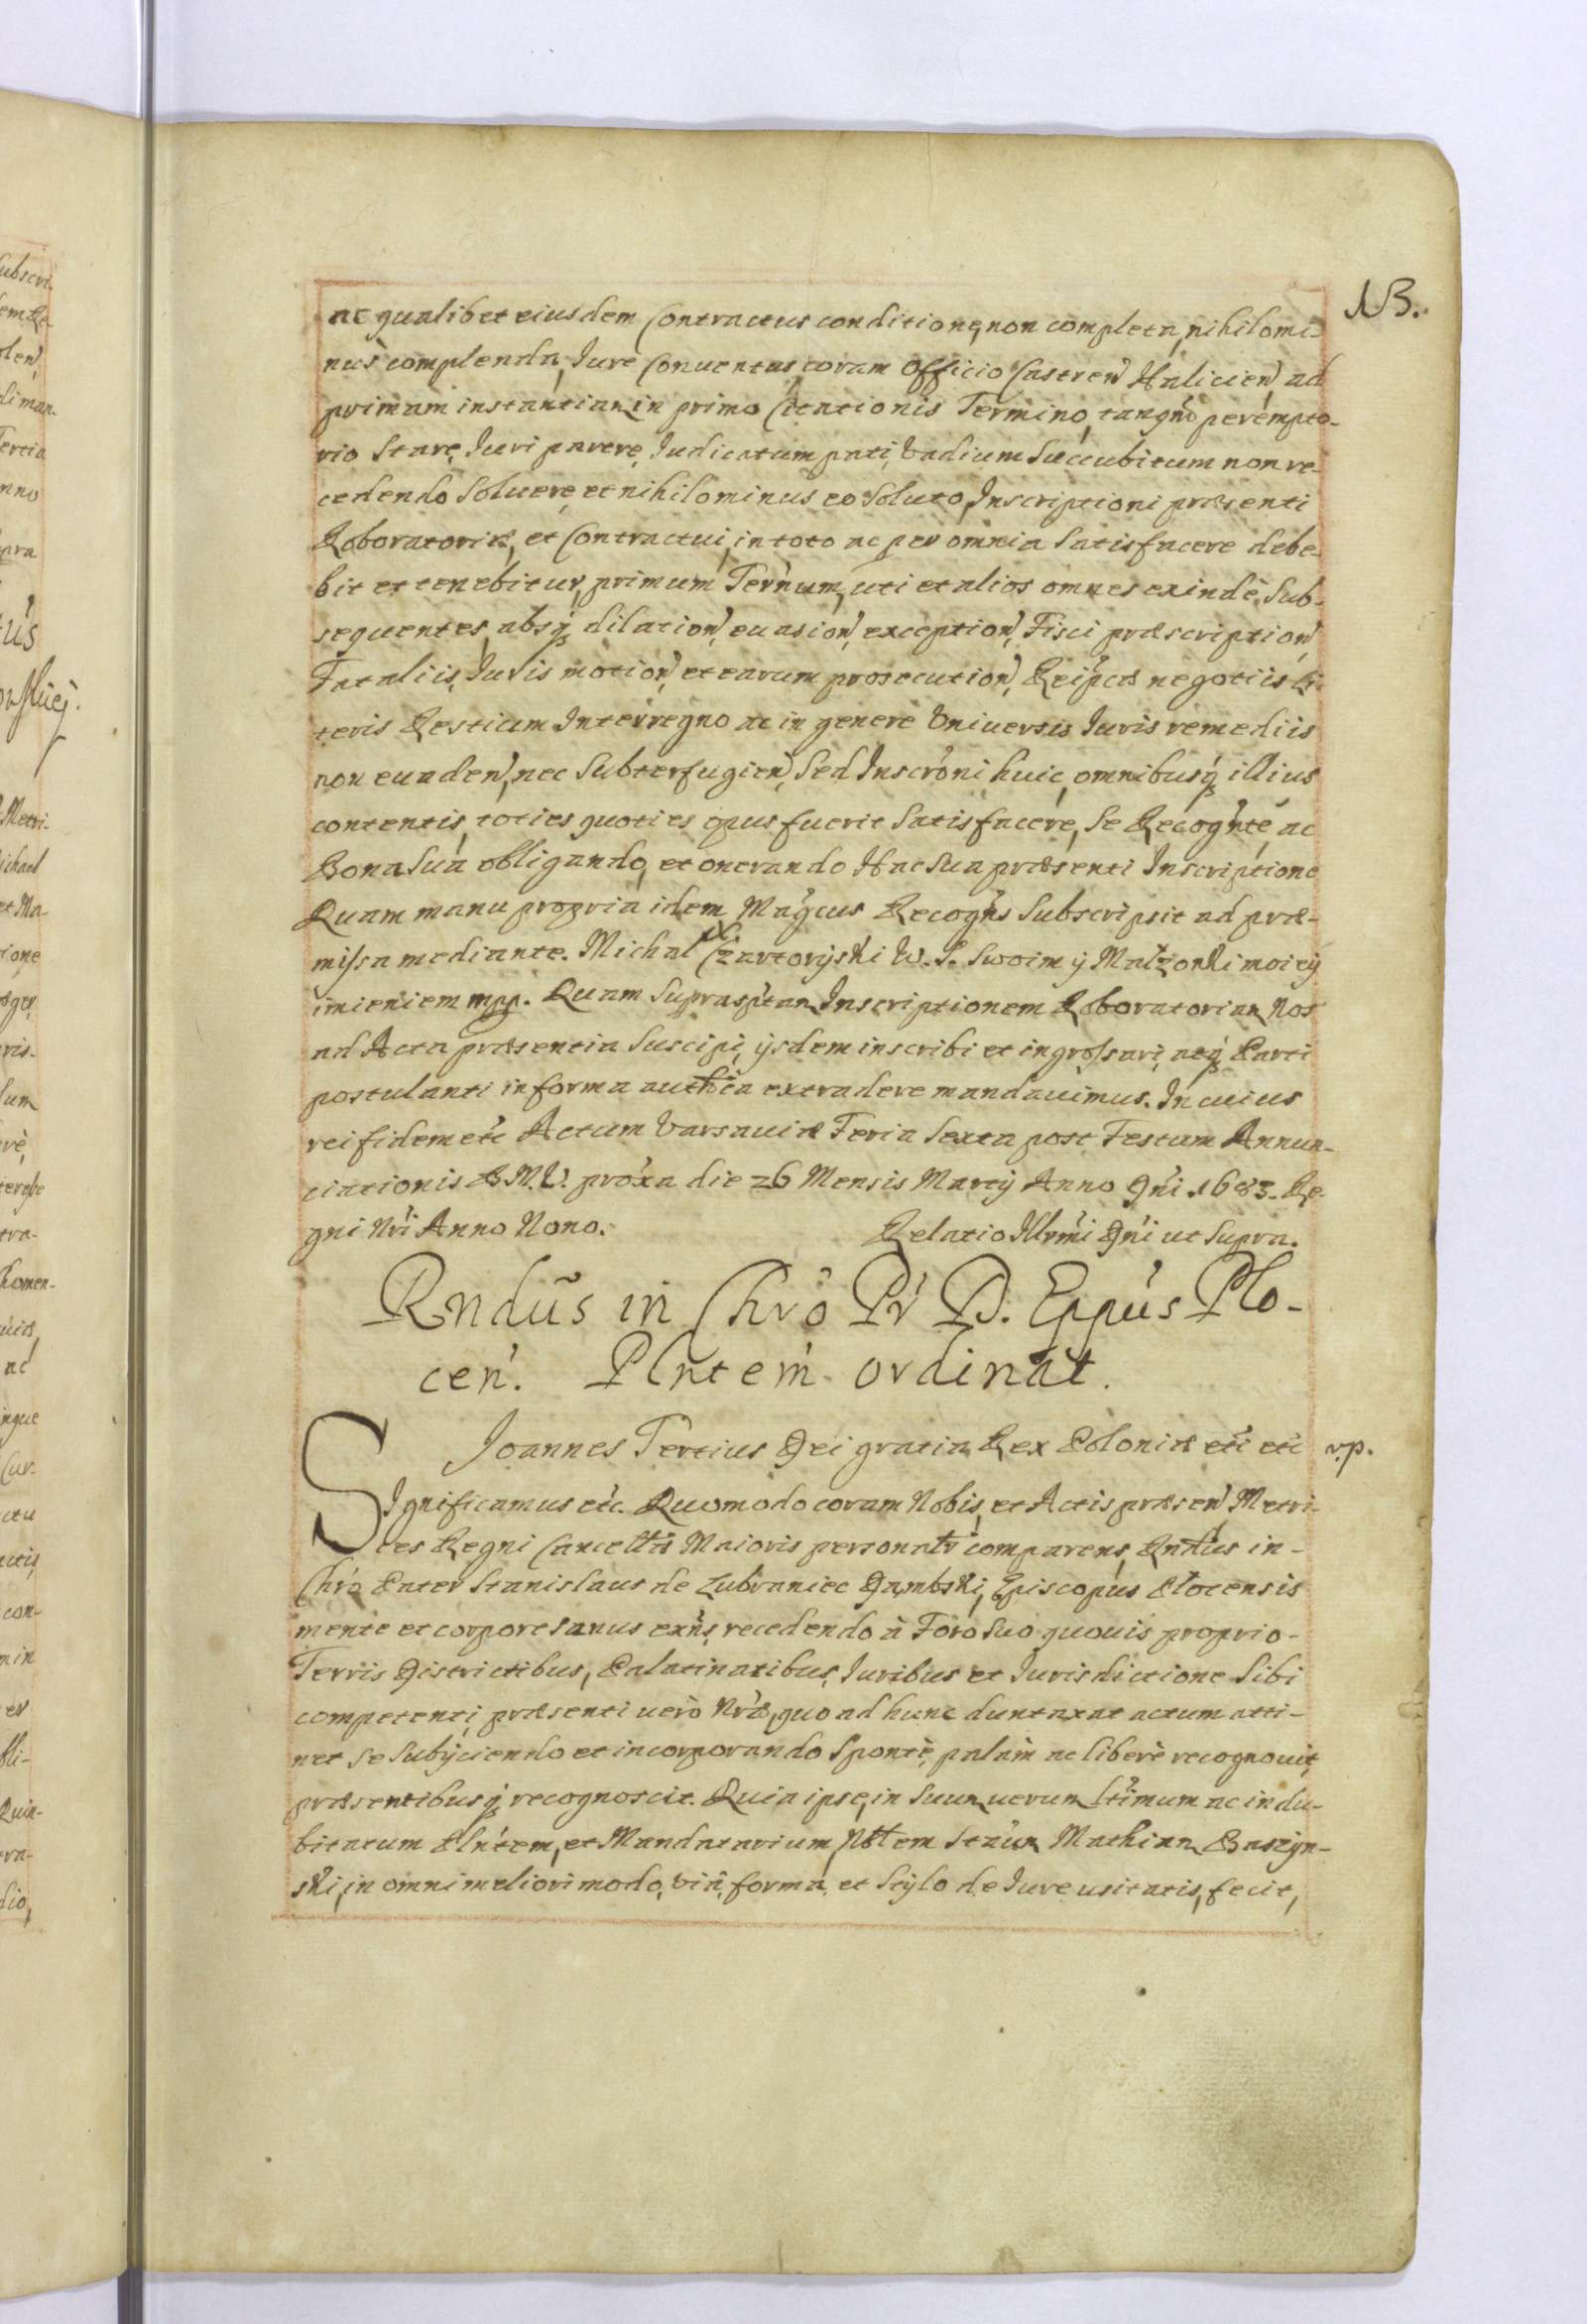 13.
ac qualibet eiusdem Contractus conditione, non completa, nihilomi-
nus complenda, Iure Conuentus, coram Officio Castren̄ Halicien̄ ad
primam instantiam in primo Citationis Termino, tanqm̃ perempto-
rio Stare, Iuri parere, Iudicatum pati, Vadium Succubitum non re-
cedendo Soluere, et nihilominus eo Soluto, Inscriptioni præsenti
Roboratoriæ, et Contractui, in toto ac per omnia Satisfacere debe-
bit et tenebitur, primum Ter'num, uti et alios omnes exindè Sub-
sequentes, absq3 dilation̄, euasion̄, exception̄, Fisci præscription̄,
Fataliis, Iuris motion̄, et earum prosecution̄, Reipcæ negotiis Li-
teris Restium Interregno ac in genere Vniuersis Iuris remediis
non euaden̄, nec Subterfugien̄, Sed Inscr'oni huic, omnibusq3 illius
contentis, toties quoties opus fuerit Satisfacere, Se Recogn'te, ac
Bona Sua obligando, et onerando Hac Sua præsenti Inscriptione
Quam manu propria idem Mag'cus Recogn's Subscripsit ad præ-
missa mediante. Michal X Czartoryski W. S. Swoim y Malzonki moiey
imieniem mpp. Quam Suprasp'tam Inscriptionem Roboratoriam Nos
ad Acta præsentia Suscipi, ijsdem inscribi et ingrossari, atq3 Parti
postulanti in forma auth'ca extradere mandauimus. In cuius
rei fidem etc Actum Varsauiæ Feria Sexta post Festum Annun-
ciationis B.M.V. prox'a die 26 Mensis Martij Anno D'ni 1683. Re-
gni Nr'i Anno Nono. Relatio Illrm'i D'ni ut Supra.
Rndus in Chr'o P'r D. Epp'us Plo-
cen'. Pln'tem ordinat.
Joannes Tertius Dei gratia Rex Poloniæ etc etc v.p.
Significamus etc. Quomodo coram Nobis, et Actis præsen̄, Metri-
ces Regni Cancellæ Maioris personaltr comparens, Rndus in-
Chr'o Pater Stanislaus de Lubraniec Dambski, Episcopus Plocensis
mente et corpore sanus exn's, recedendo à Foro Suo quouis proprio-
Terris Districtibus, Palatinatibus, Iuribus et Iurisdictione Sibi
competenti, præsenti uerò Nr'æ, quo ad hunc duntaxat actum atti-
net se Subijciendo et incorporando Spontè, palàm ac liberè recognouit,
præsentibusq3 recognoscit. Quia ipse, in Suum uerum Lt'imum ac indu-
bitatum Pln'tem, et Mandatarium, Nblem Sta'um Mathiam Baszyn-
ski, in omni meliori modo, viâ, forma, et Stylo de Iure usitatis, fecit,